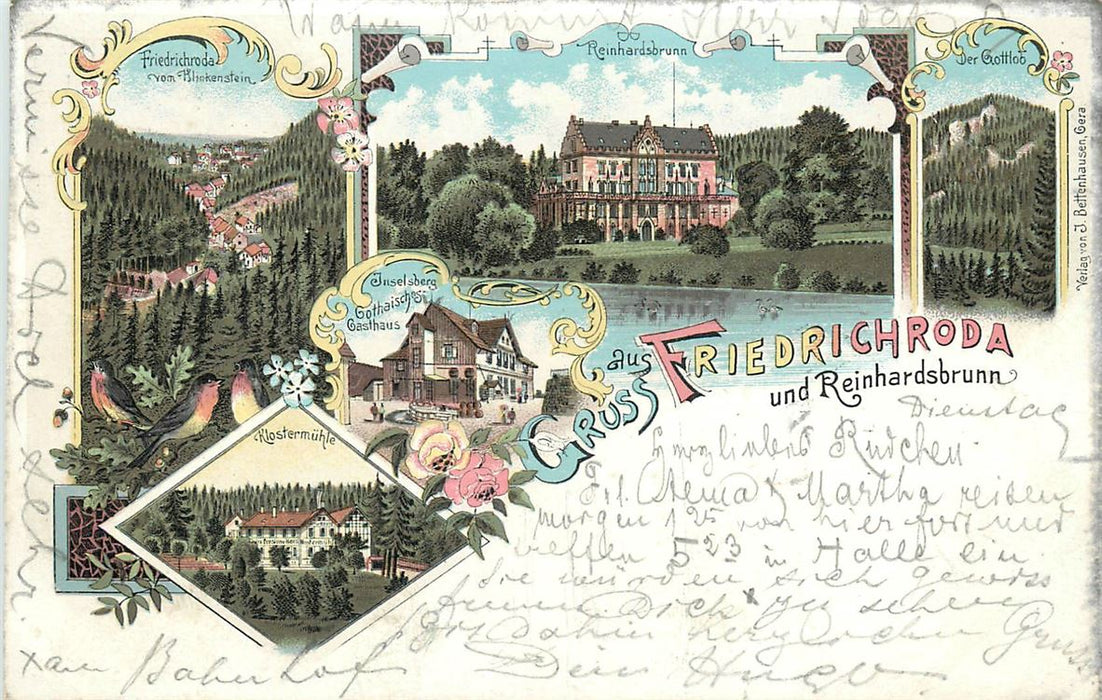 Wann kommt Herr
Friedrichroda
vom Klinkenstein
Reinhardsbrunn
Der Gottlob
Verlag von J. Bettenhausen, Gera
Inselsberg
Gothaisches
Gasthaus
Klostermühle
Gruss aus Friedrichroda
und Reinhardsbrunn
Dienstag
Herzliebes Rudchen.
Frl. Alema & Martha reisen
morgen 1 25 von hier fort und
treffen 5 23 in Halle ein
Sie würden sich gewiss
freuen Dich x zu sehen
Bis dahin herzlichen Gruss
Dein Hugo
x am Bahnhof
Vermisse Dich sehr